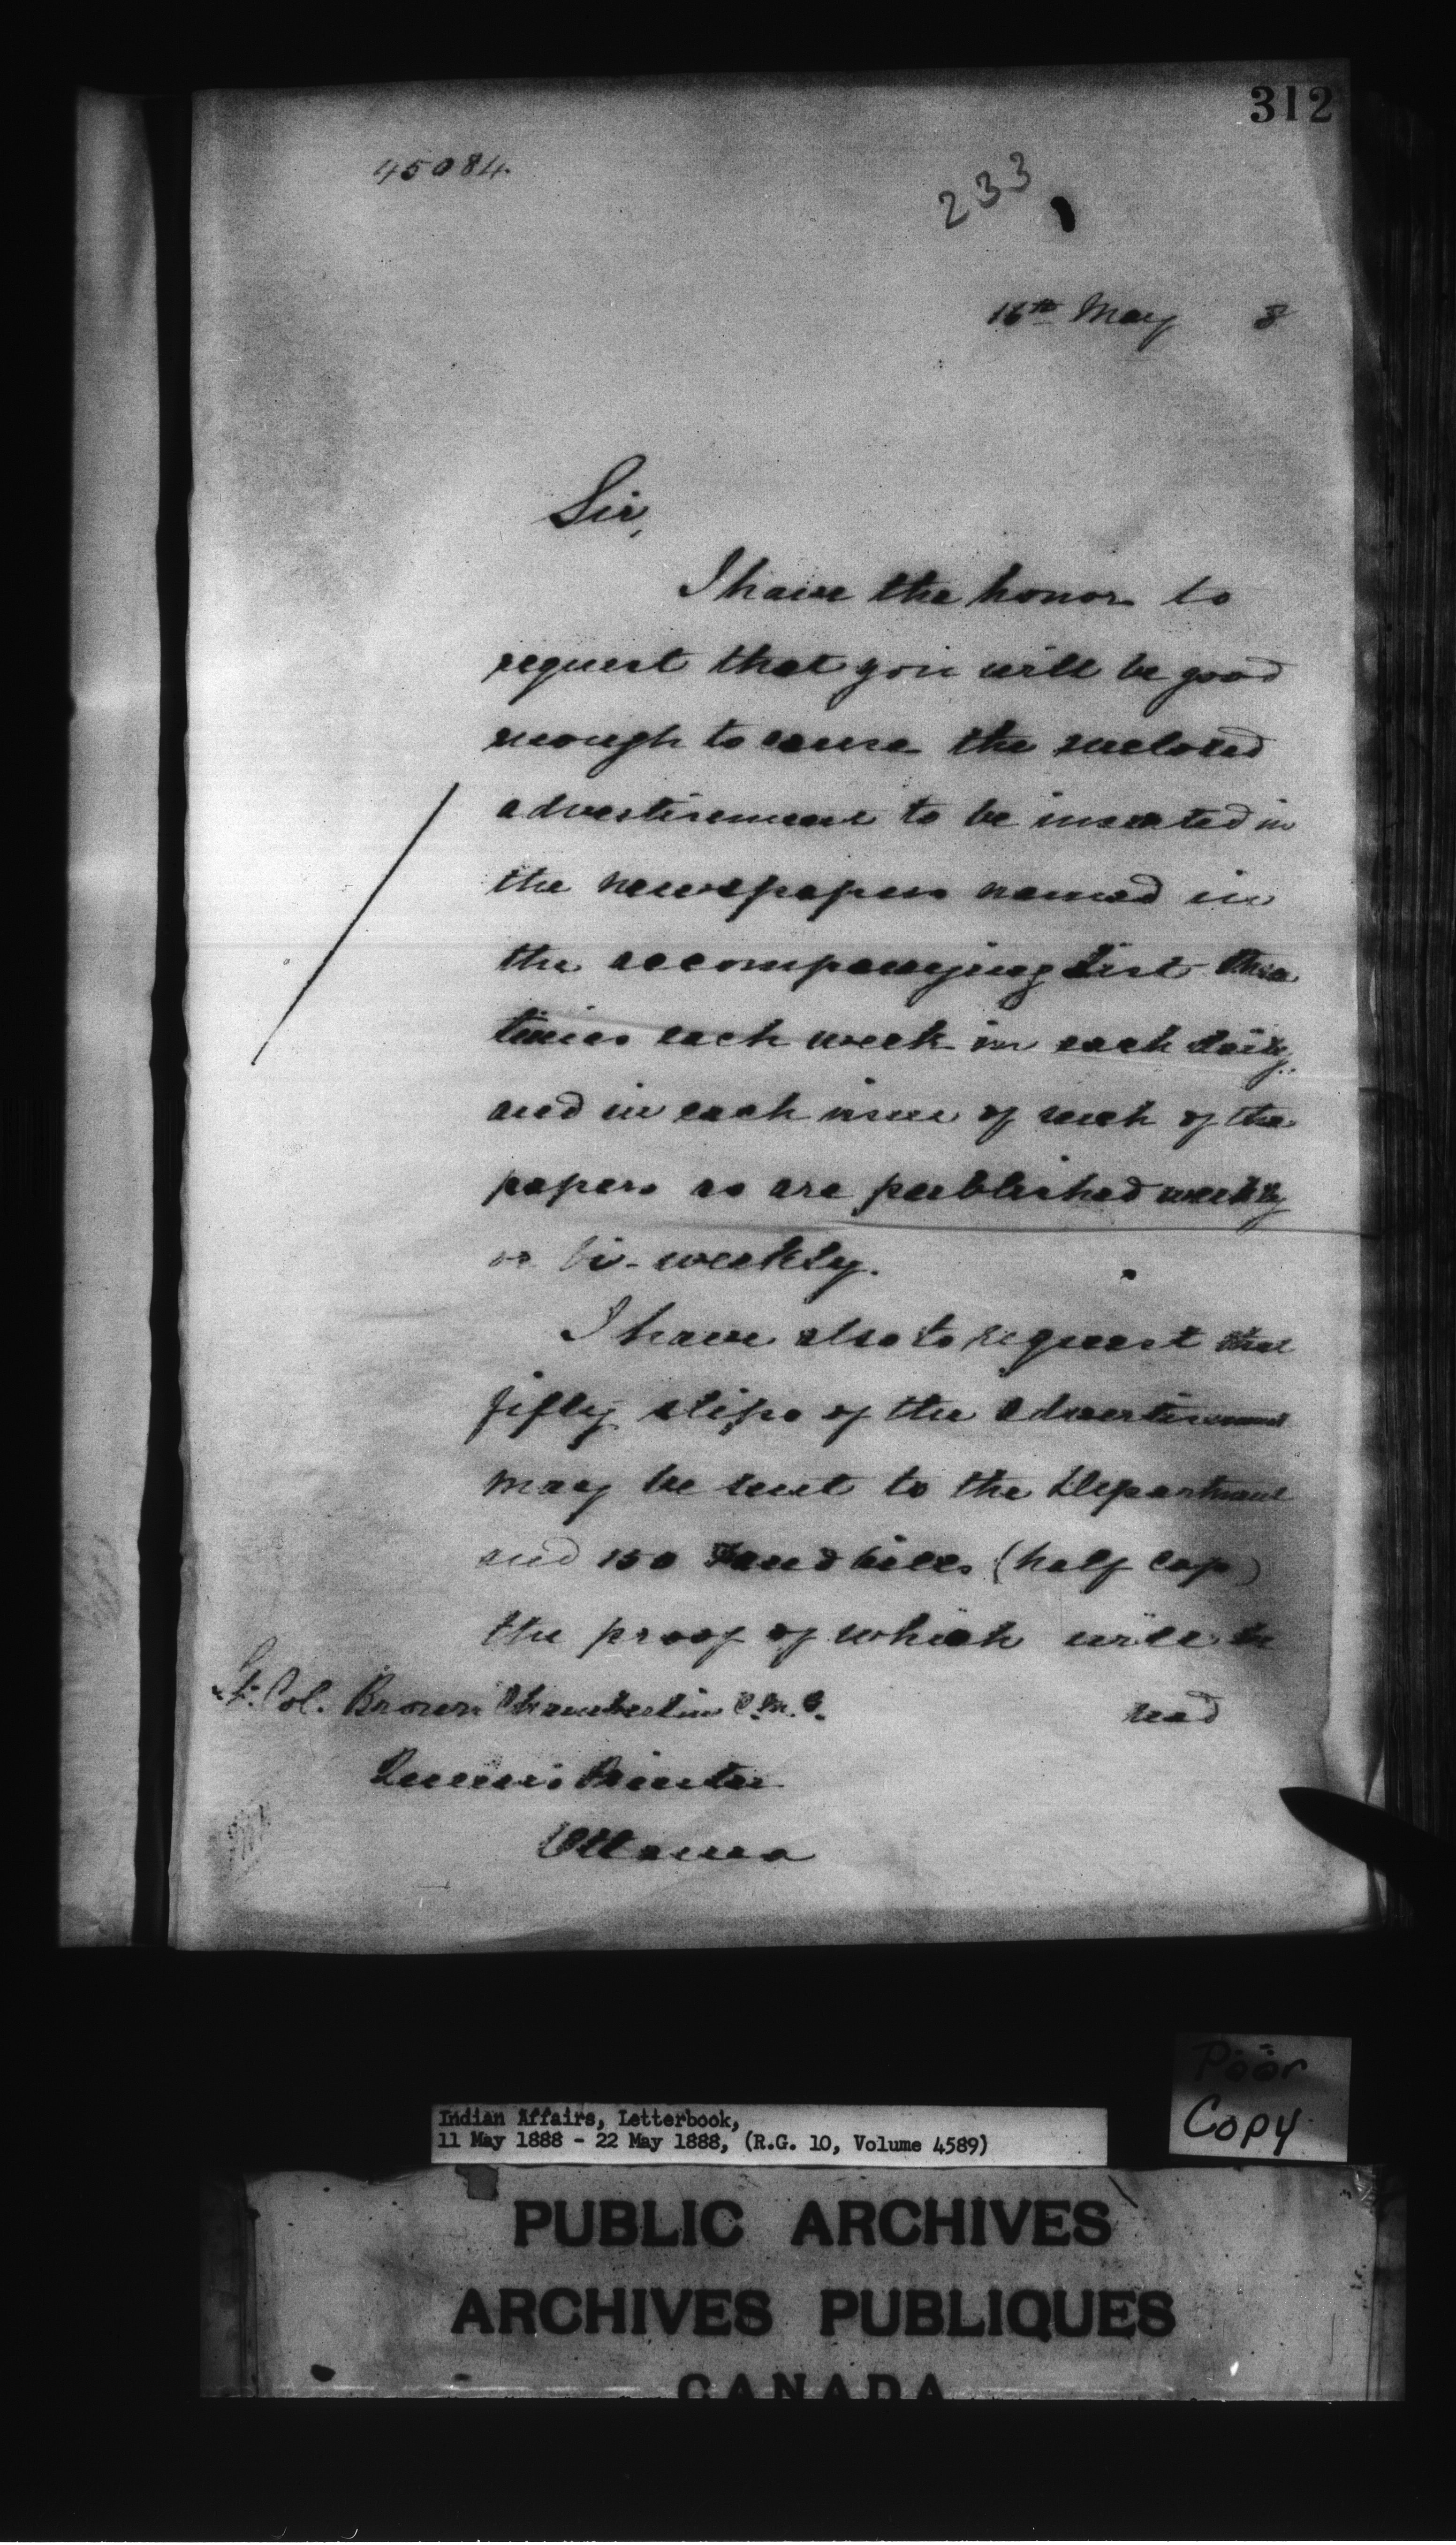 312
45084.
233
16th May 8
Sir,
I have the honor to
request that you will be good
enough to cause the enclosed
advertisement to be inserted in
the newspapers named in
the accompanying list three
times each week in each daily,
and in each issue of such of the
papers as are published weekly
or bi-weekly.
I have also to request that
fifty slips of the advertisement
may be sent to the Department
and 150 Handbills (half cap)
the proof of which will be
Lt. Col. Brown Chamberlin C.M.G. read
Queen's Printer
Ottawa
Poor
Copy
Indian Affairs, Letterbook,
11 May 1888 - 22 May 1888, (R.G. 10, Volume 4589)
PUBLIC ARCHIVES
ARCHIVES PUBLIQUES
CANADA